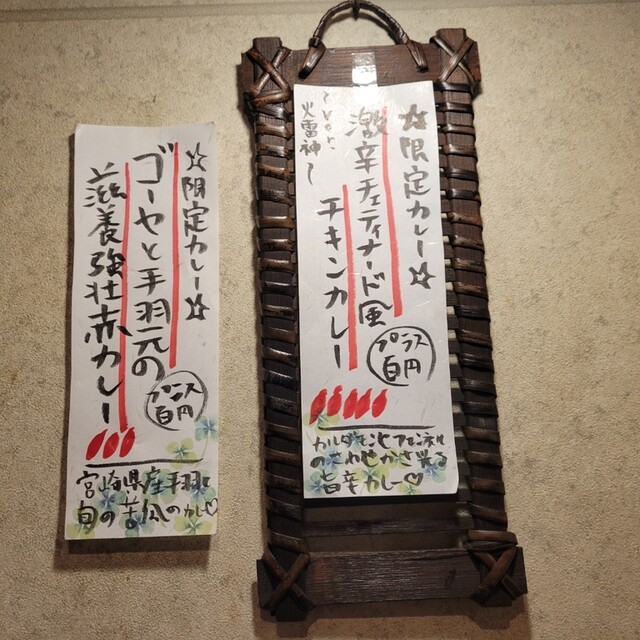 ☆限定カレー☆
激辛チェティナード風
チキンカレー
火雷神〜
プラス
百円
カルダモンとフェンネル
旨辛カレー♡
☆限定カレー☆
ゴーヤと手羽元の
滋養強壮赤カレー
プラス
百円
宮崎県産手羽と
旬の苦瓜のカレー♡